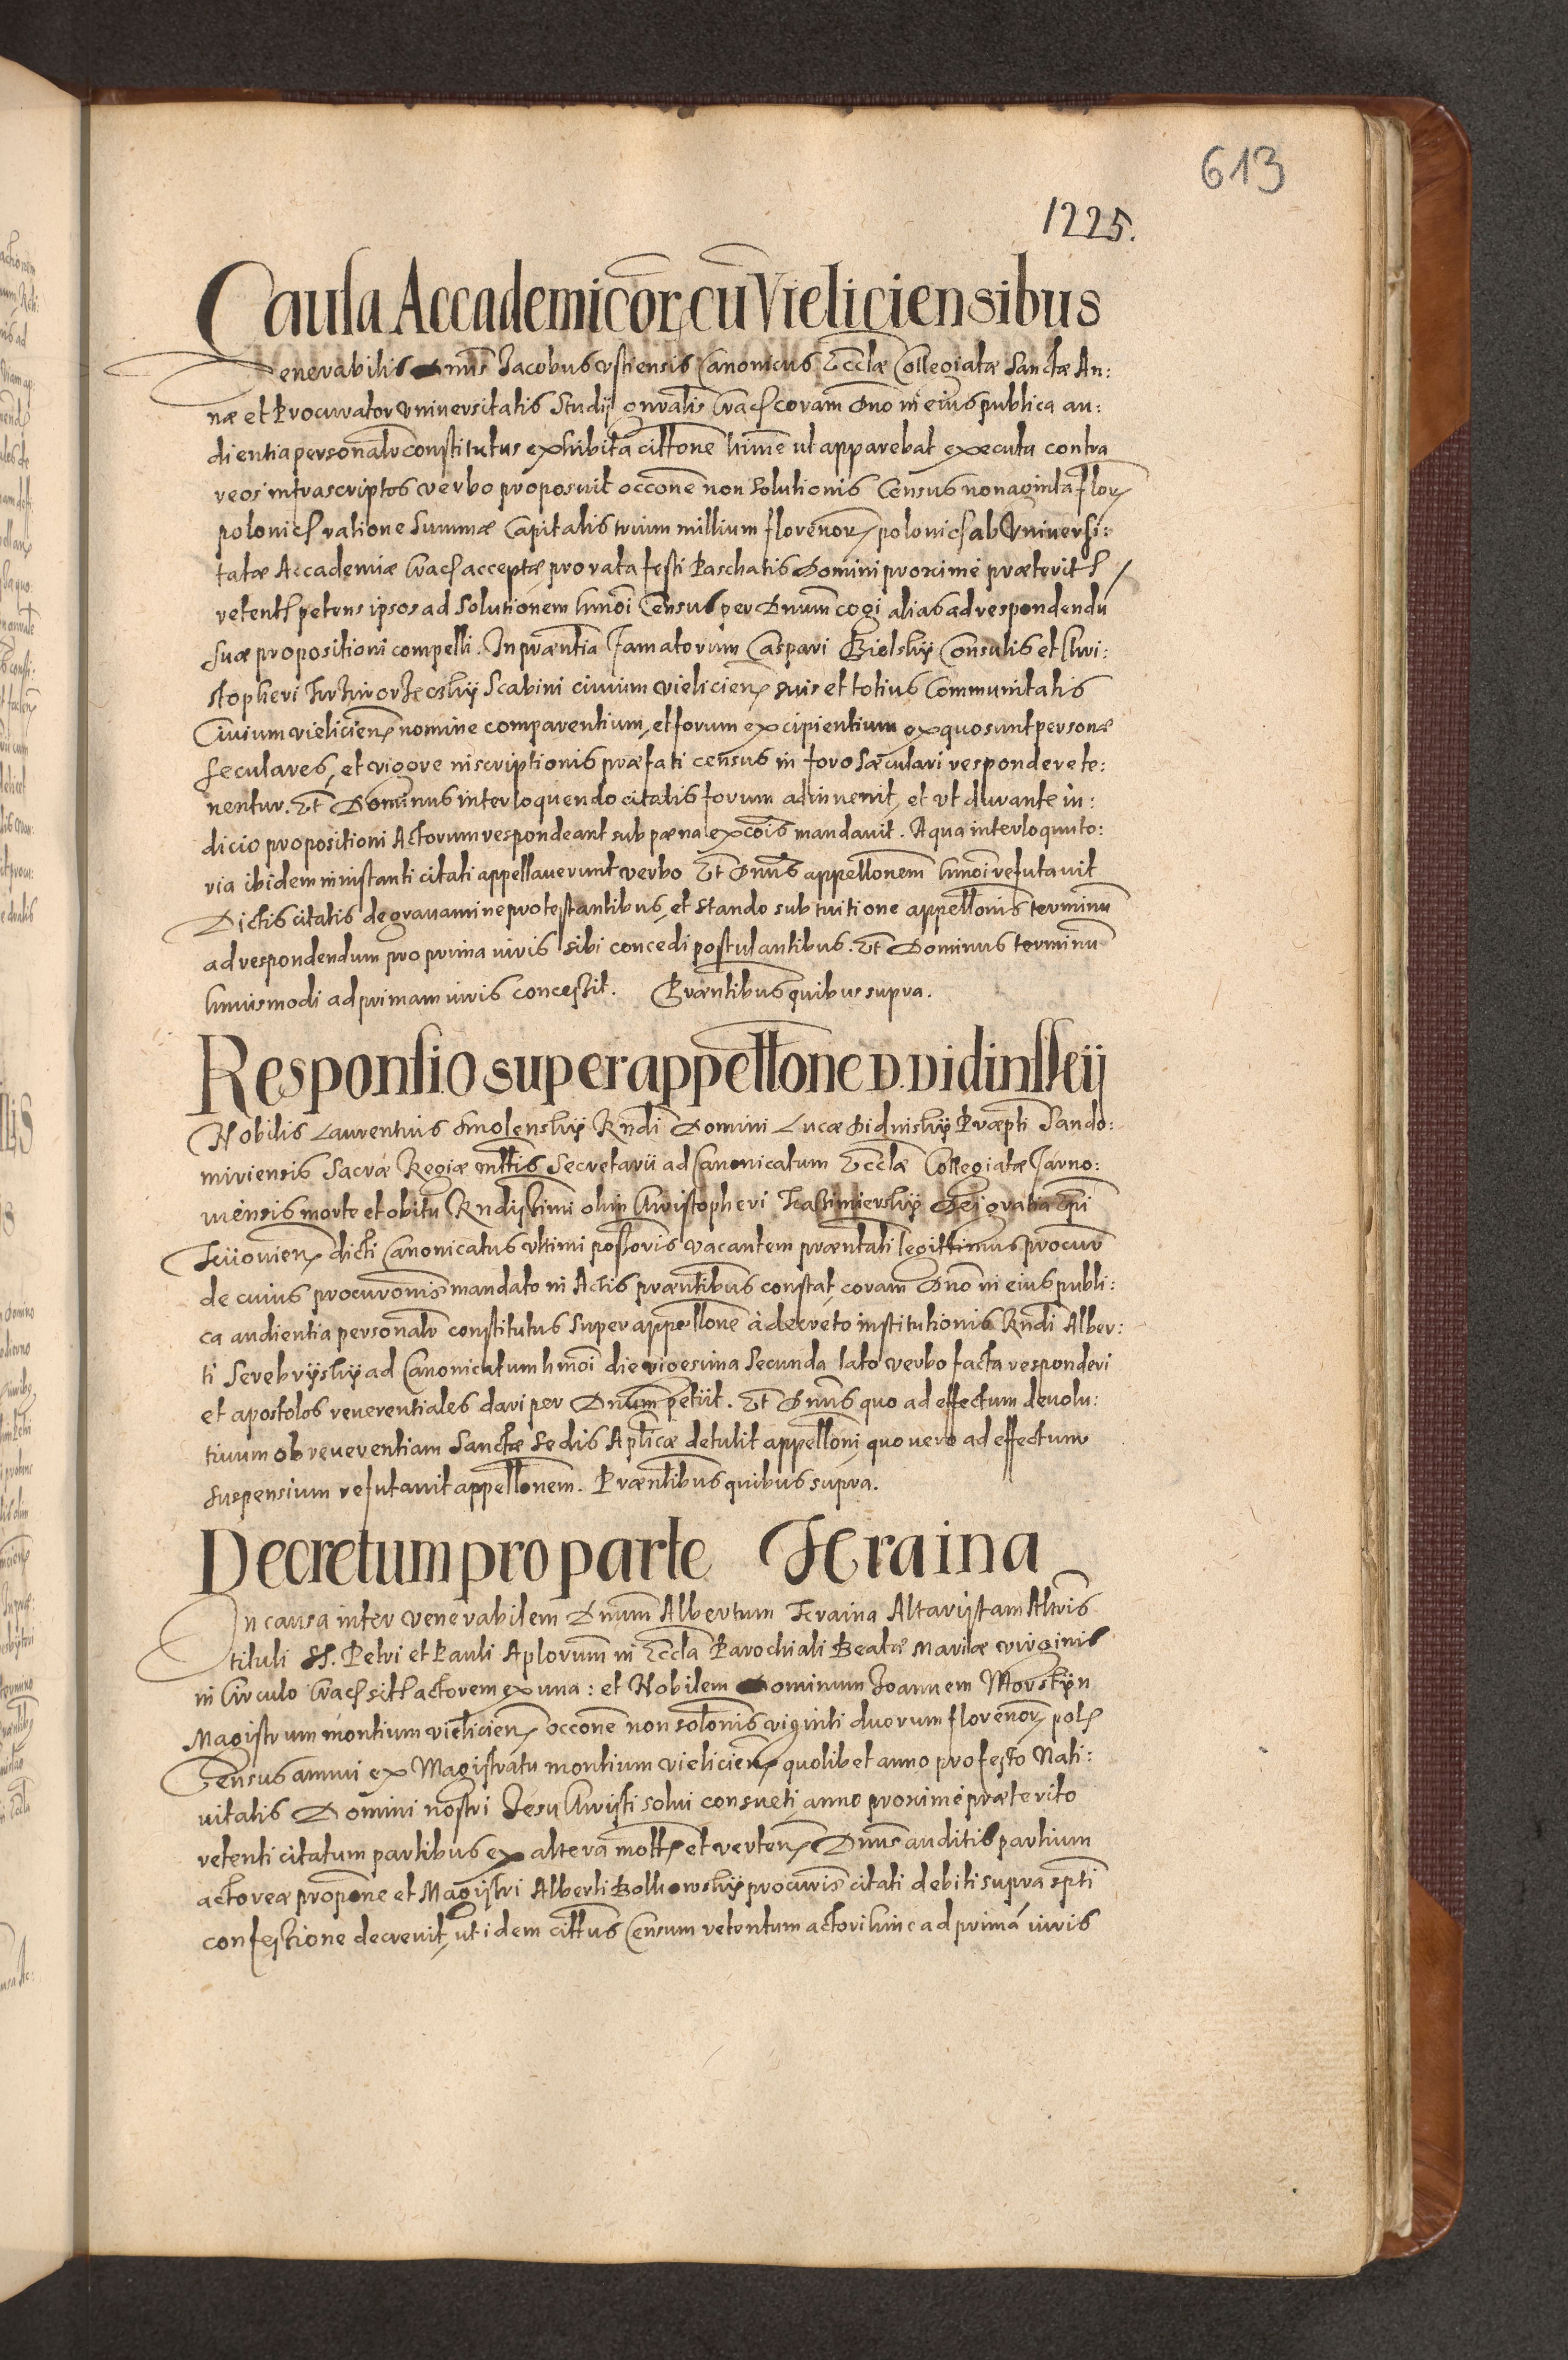 613
1225.
Causa Accademicor, cũ Vieliciensibus
Venerabilis Dnus Jacobus Vstiensis Canonicus Ecclae Collegiatae Sanctae An:
nae et Procurator Vniuersitatis Studij gnralis Crac coram Dno in eius publica au:
dientia personalr constitutus exhibita cittone hinne ut apparebat executa contra
reos infrascriptos verbo proposuit occone non Solutionis Census nonaginta flor
polonic ratione Summae Capitalis trium millium florenor polonic ab Vniuersi:
tatae Accademiae Crac acceptae pro rata festi Paschatis Domini proxime praeterit
retent petens ipsos ad Solutionem hmoi Census per Dnum cogi alias ad respondendũ
Suae propositioni compelli. In praentia Famatorum Caspari Bielsky Consulis et Chri:
stopheri Scabini ciuium vieliciens suis et totius Communitatis
Ciuium vieliciens nomine comparentium, et forum excipientium ex quo sunt personae
seculares, et vigore inscriptionis praefati census in foro Saeculari respondere te:
nentur. Et Dominus interloquendo citatis forum adinuenit, et vt durante iu:
dicio propositioni Actorum respondeant sub paena excois mandauit. A qua interloquuto:
ria ibidem in instanti citati appellauerunt verbo Et Dnus appellonem hmoi refutauit
Dictis citatis de grauamine protestantibus, et stando sub tuitione appellonis terminũ
ad respondendum pro prima iuris sibi concedi postulantibus. Et Dominus terminũ
huiusmodi ad primam iuris concessit. Praentibus quibus supra.
Responsio super appellone D. Vidinskij
Nobilis Laurentius Smolensky Rndi Domini Lucae Didinsky Praepti Sando:
miriensis Sacrae Regiae mttis Secretarii ad Canonicatum Ecclae Collegiatae Tarno:
uiensis morte et obitu Rndissimi olim Christopheri Kasimiersky Dei gratia Epi
Kiiouien dicti Canonicatus vltimi possoris vacantem praentati legittimus procur
de cuius procuronis mandato in Actis praentibus constat, coram Dno in eius publi:
ca audientia personalr constitutus Super appellone à decreto institutionis Rndi Alber:
ti Serebrysky ad Canonicatum hmoi die vigesima Secunda lato verbo facta responderi
et apostolos reuerentiales dari per Dnum petiit. Et Dnus quo ad effectum deuolu:
tiuum ob reuerentiam Sanctae Sedis Aplicae detulit appelloni, quo vero ad effectum
suspensium refutauit appellonem. Praentibus quibus supra.
Decretum pro parte Kraina
In causa inter venerabilem Dnum Albertum Kraina Altaristam Altris
tituli SS. Petri et Pauli Aplorum in Eccla Parochiali Beatae Mariae virginis
in Circulo Crac sitt actorem ex una: et Nobilem Dominum Joannem Morstyn
Magistrum montium vieliciens occone non solonis viginti duorum florenor pol
Census annui ex Magistratu montium vieliciens quolibet anno pro festo Nati:
uitatis Domini nostri Jesu Christi solui consueti, anno proximè praeterito
retenti citatum partibus ex altera mott et verten Dnus auditis partium
actoreae propone et Magistri Alberti Bolkowsky procuris citati debiti supra spti
confessione decreuit, ut idem cittus Censum retentum actori hinc ad primã iuris